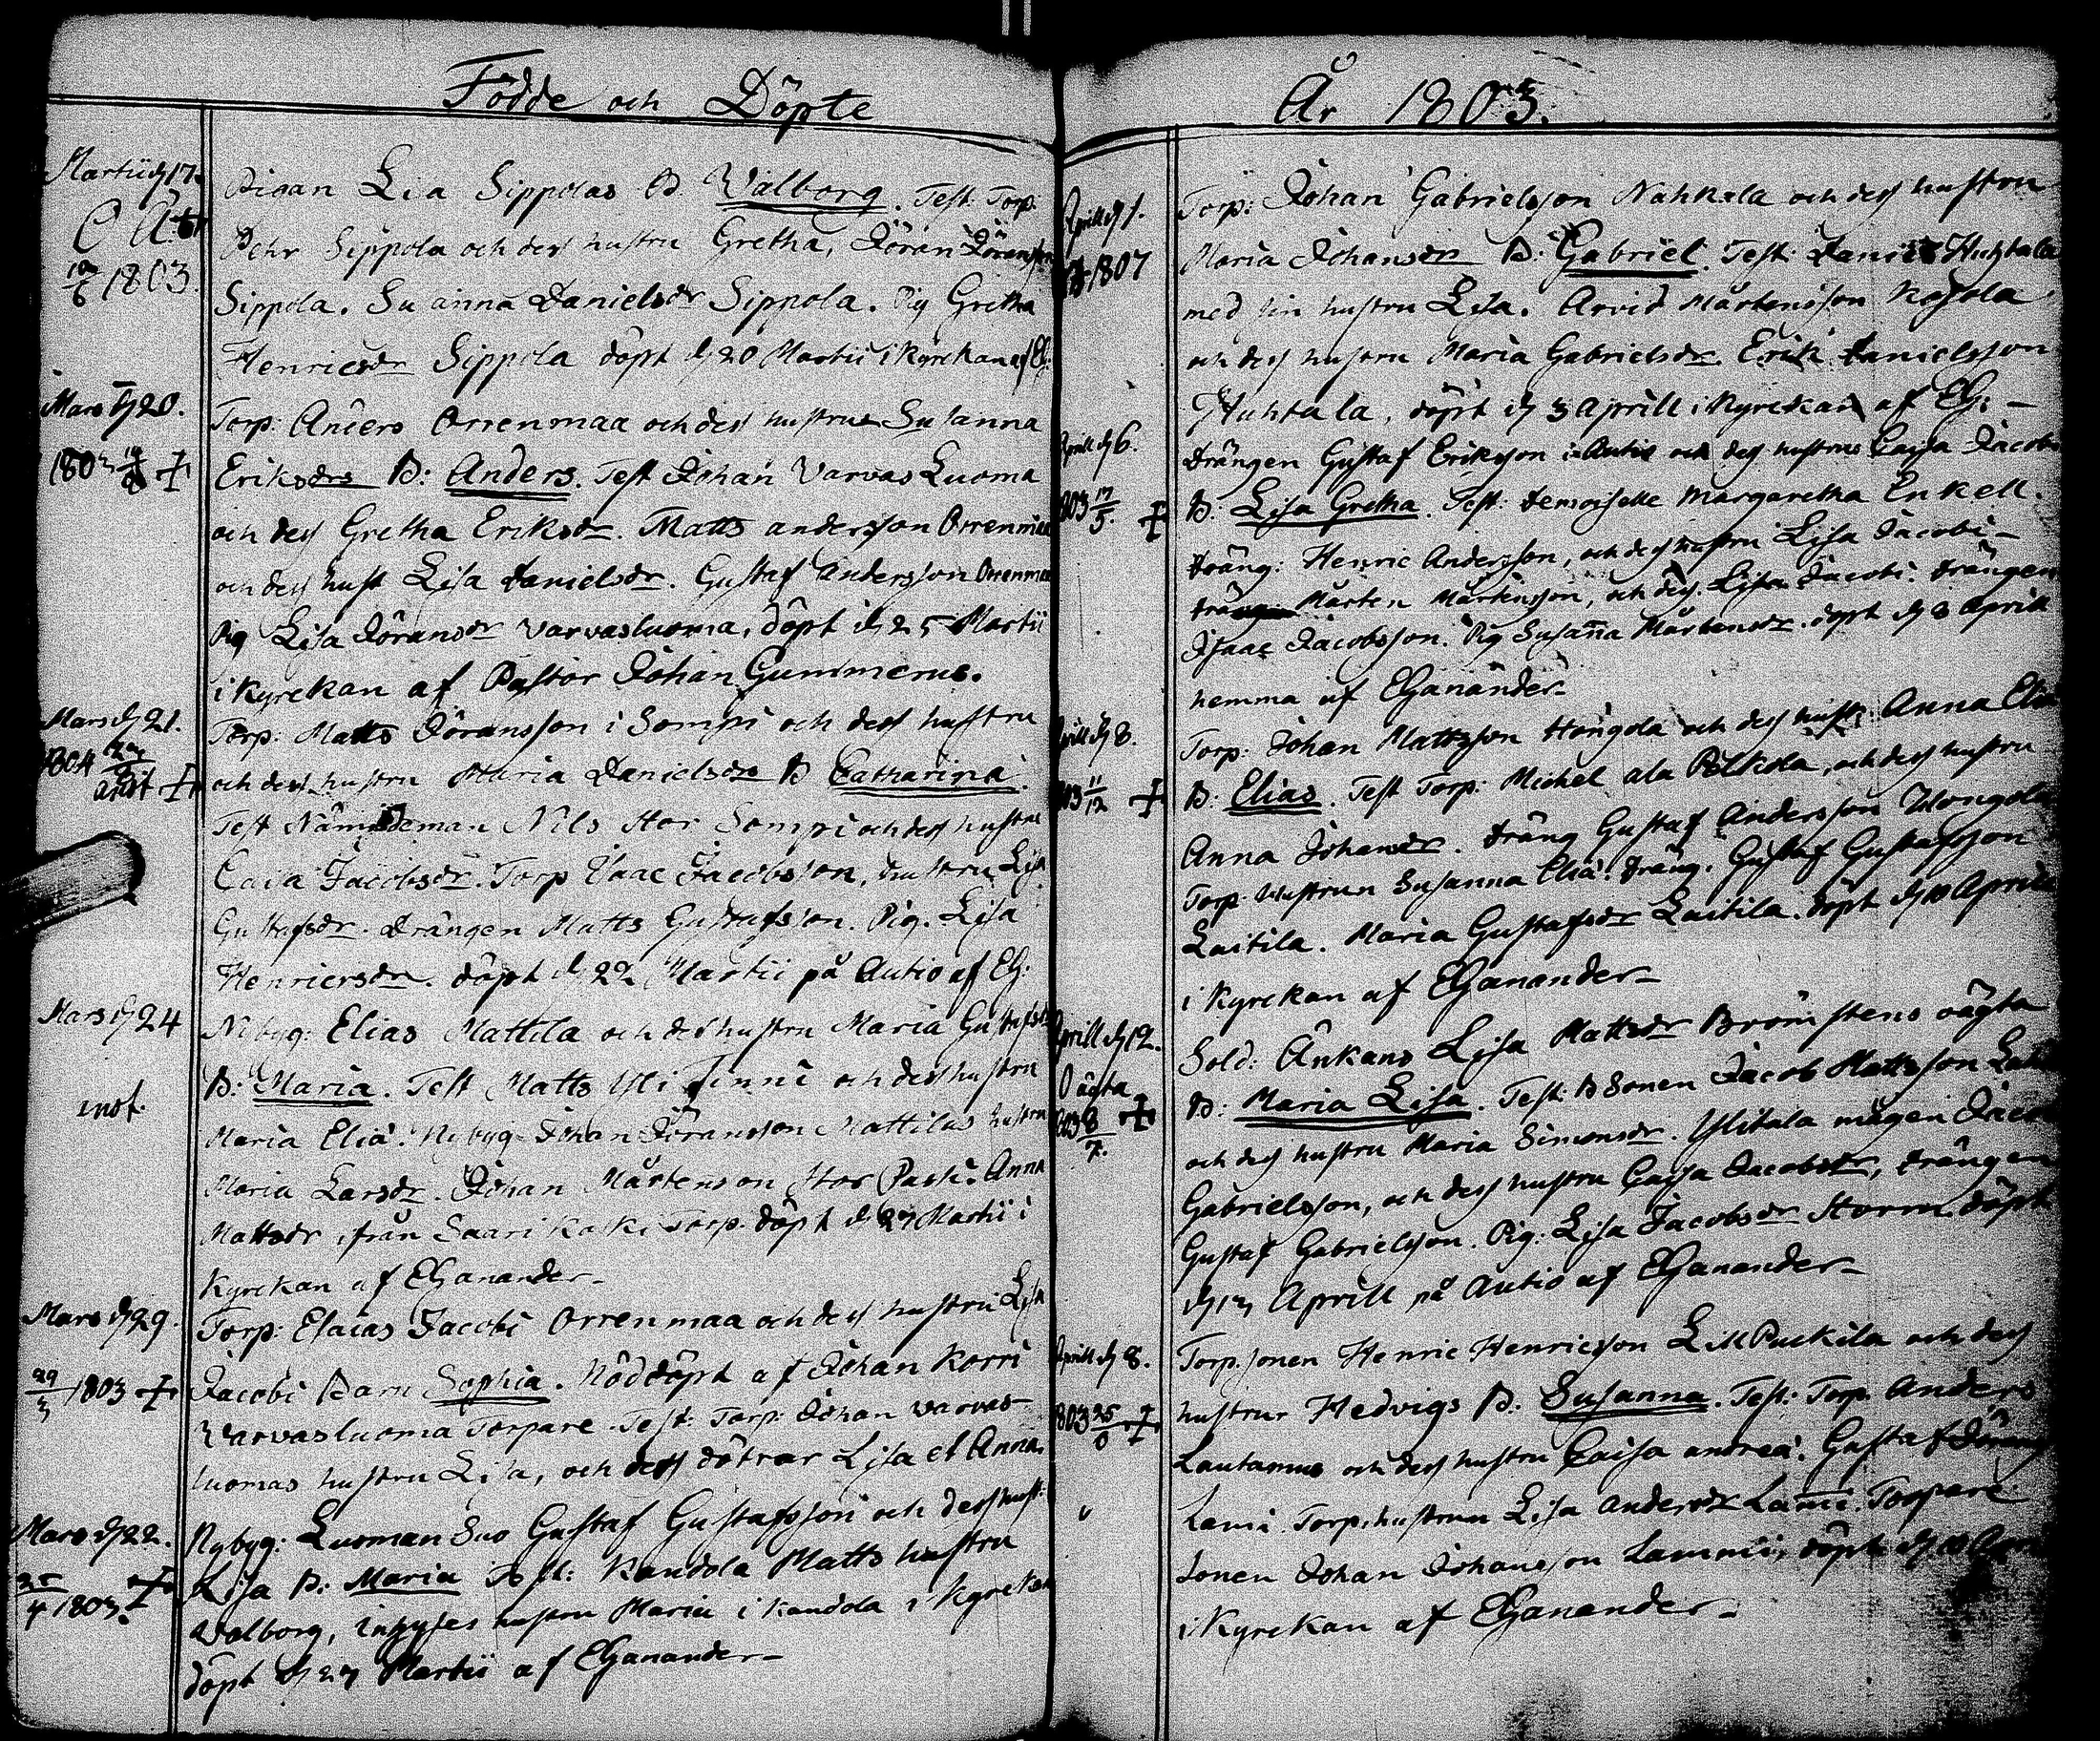 Födde och Döpte
År 1803.
Martii d 17.
Pigan Lisa Sippolas B Walborg. Test: Torp:
Pehr Sippola och dess hustru Gretha, Jöran Jöransson
1803
Sippola. Susanna Danielsdr Sippola. Pig Gretha
Henricsdr Sippola döpt d 20 Martii i Kyrckan af EG:
Mars d 20.
Torp: Anders Orrenmaa och dess hustrus Susanna
1803
Eriksdrs B: Anders. Test Johan Varvas Luoma
och dess Gretha Eriksdr. Matts andersson Orrenmaa
och dess hust Lisa Danielsdr. Gustaf Andersson Orrenmaa
Pig Lisa Jöransdr Varvasluoma, döpt d 25 Martii
i Kyrckan af Pastor Johan Gummerus.
Mars d 21.
Torp: Matts Jöransson i Sompi och dess hustru
1804
och dess hustru Maria Danielsdr B Catharina.
Test Nämndeman Nils Stor Sompi och dess hustru
Caisa Jacobsdr. Torp Isaac Jacobsson, hustru Lisa
Gustafsdr. Drängen Matts Gustafsson. Pig. Lisa
Henricsdr. döpt d 22 Martii på Autio af EG:
Mars d 24
Nybyg: Elias Mattila och dess hustru Maria Gustafsdr
B: Maria. Test Matts Yli Finni och dess hustru
Maria Eliæ. Nybyg Johan Jöransson Mattilas hustru
Maria Larsdr. Johan Mårtensson Stor Pasti. Anna
Mattsdr, från Saari Kalki Torp. döpt d 27 Martii i
Kyrckan af EGanander
Mars d 29.
Torp: Esaias Jacobi Orrenmaa och dess hustru Lisa
29/3 1803
Jacobi Barn Sophia. Nöddöpt af Johan Korri
Varvasluoma Torpare. Test: Torp: Johan Varvas-
luomas hustru Lisa, och dess döttrar Lisa et Anna.
Mars d 22.
Nybyg: Luoman Suo Gustaf Gustafsson och dess hust:
Lisa B: Maria Test: Kandola Matts hustru
1803.
Walborg, Inhyses hustru Maria i Kandola i Kyrckan
döpt d 27 Martii af EGanander
Aprill d 1.
Torp: Johan Gabrielsson Nahkala och dess hustru
1807
Maria Johansdr B: Gabriel. Test: Daniel Huhtala
med sin hustru Lisa. Arvid Mårtensson Kojola
och dess hustru Maria Gabrielsdr. Erik Danielsson
Huhtala, döpt d 3 Aprill i Kyrckan af EG:
Aprill d 6.
Drängen Gustaf Eriksson i Autio och dess hustrus Caisa Jacobi
1803 17/5.
B: Lisa Gretha. Test: Demoiselle Margaretha Enkell.
dräng: Henric Andersson, och dess hustru Lisa Jacobi
Mårten Mårtensson, och dess. Lisa Jacobi. drängen
Isaac Jacobsson. Pig Susanna Mårtensdr. döpt d 8 Aprill
hemma af EGanander
Aprill d 8.
Torp: Johan Mattsson Hongola och dess hustr: Anna Eliæ
1803 11/12
B: Elias. Test Torp: Michel ala Pölkola, och dess hustru
Anna Johansdr. dräng Gustaf Andersson Hongola
Torp: Hustrun Susanna Eliæ. dräng. Gustaf Gustafsson
Laitila. Maria Gustafsdr Laitila. döpt d 10 Aprill
i Kyrckan af EGanander
Aprill d 12.
Sold: Änkans Lisa Mattsdr Brömstens oägta
Oägta
1803 8/7.
B: Maria Lisa. Test: B Sonen Jacob Mattsson
och dess hustru Maria Simonsdr. Ylitala mågen Jacob
Gabrielsson, och dess hustru Caisa Jacobsdr, drängen
Gustaf Gabrielsson. Pig: Lisa Jacobsdr Storm döpt
d 13 Aprill på Autio af EGanander
Aprill d 8.
Torp. sonen Henric Henricsson Lill Puckila och dess
1803
hustrur Hedvigs B: Susanna. Test: Torp. Anders
Lautamus och dess hustru Caisa andreæ. Gustaf
Lami. Torp. hustrun Lisa Andersdr Lami. Torpare
sonen Johan Johansson Lammi, döpt d 10 Aprill
i Kyrckan af EGanander